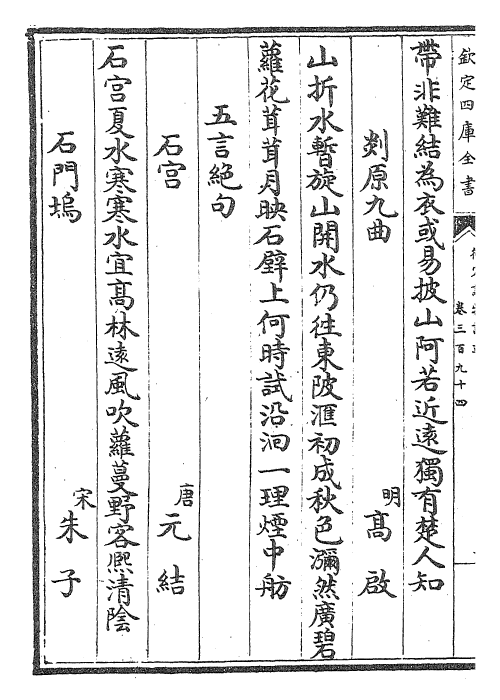 欽定四庫全書
卷三百九十四
帶非難結為衣或易披山阿若近遠獨有楚人知
剡原九曲 明 高啟
山折水暫旋山開水仍往東陂滙初成秋色瀰然廣碧
蘿花茸茸月映石壁上何時試沿洄一理煙中舫
五言絕句
石宫 唐 元結
石宫夏水寒寒水宜髙林逺風吹蘿蔓野客熈清陰
石門塢 宋 朱子